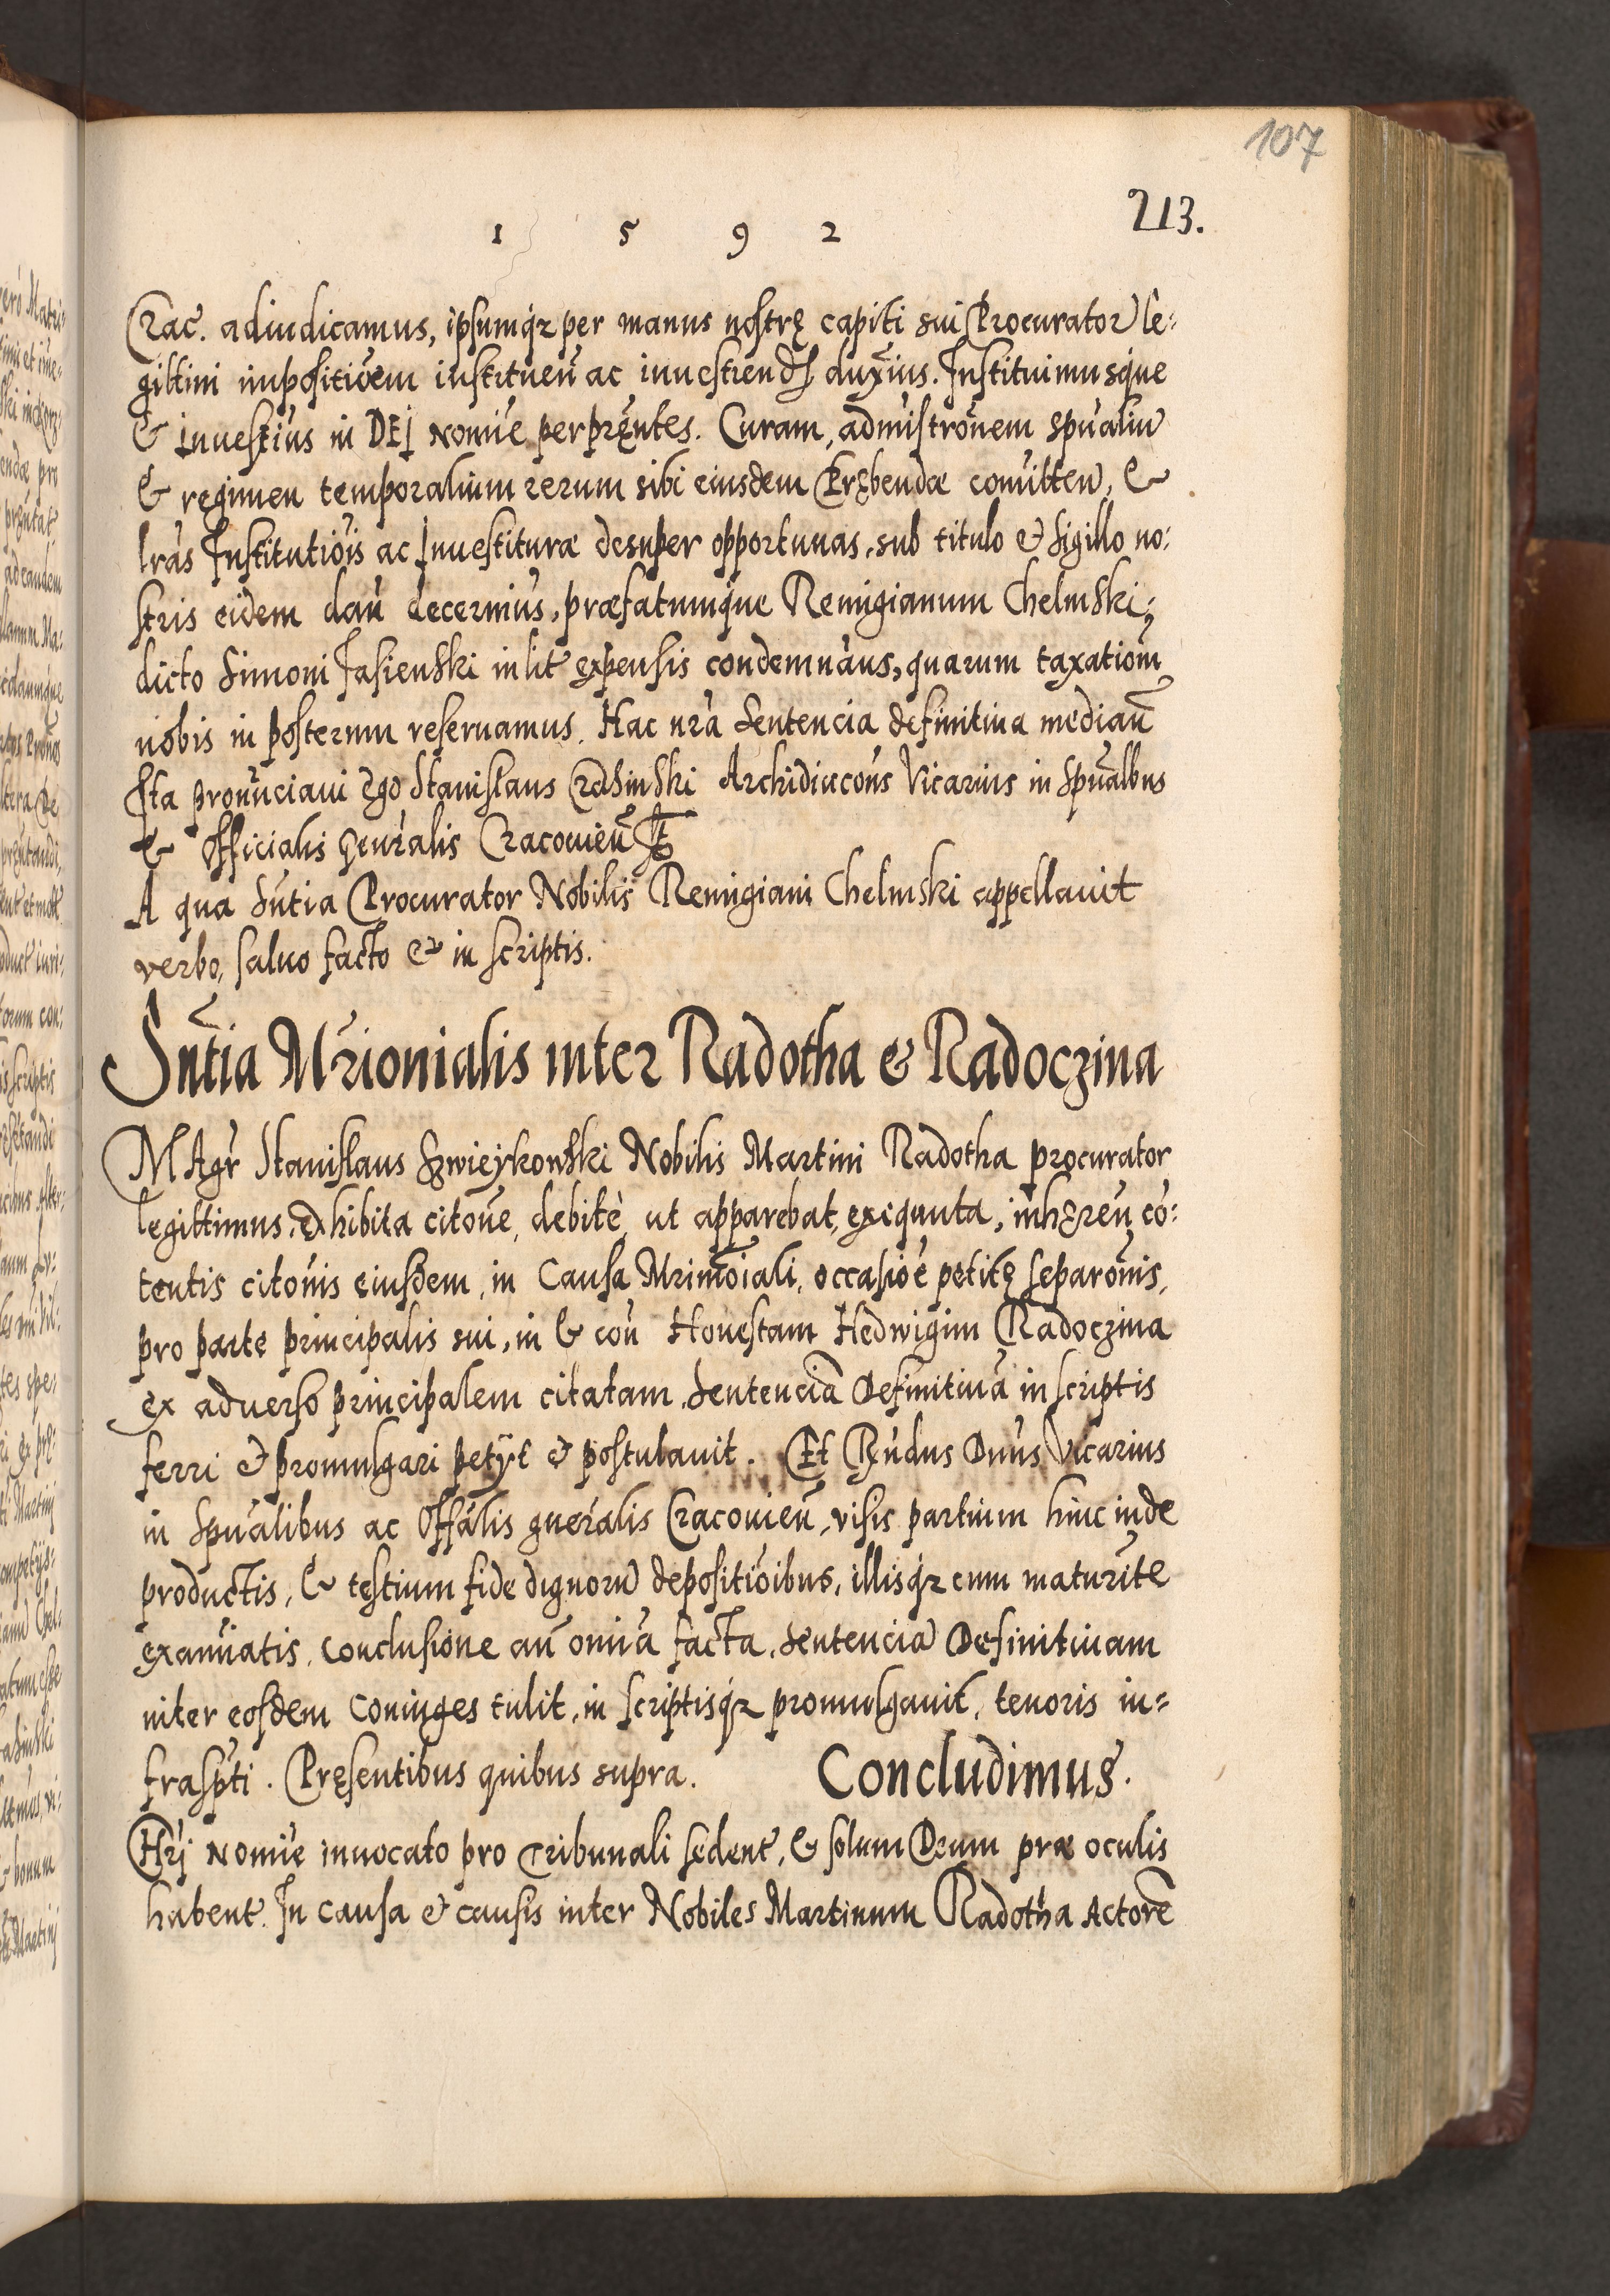 107
213.
1 5 9 2
Crac. adiudicamus, ipsumq̃ꝫ per manus nostrę capiti sui Procurator le:
gittimi impositiõem instituen̄ ac inuestiend̃ duxim̃us. Instituimusque
& inuestim̃us in DEI Nomĩe per pręñtes. Curam, admĩstrõnem spũalium
& regimen temporalium rerum sibi eiusdem Prębendæ com̃itten, &
l̃ras Institutiõis ac Inuestituræ desuper opportunas, sub titulo & Sigillo no:
stris eidem dan̄ decernim̃us, præfatumque Remigianum Chelmski,
dicto Simoni Jasienski in lit̃ expensis condemnãus, quarum taxatiom̃
nobis in posterum reseruamus. Hac nr̃a Sentencia definitiua median̄
Ita pronũciaui Ego Stanislaus Crasinski Archidiacoñs Vicarius in Spũalbus
& Officialis geñralis Cracouien̄
A qua Sñtia Procurator Nobilis Remigiani Chelmski appellauit
verbo, saluo facto & in scriptis.
Sñtia Mr̃ionialis inter Radotha & Radoczina
MAgr̃ Stanislaus Szwieykowski Nobilis Martini Radotha procurator
legittimus, exhibita citõne, debitè, ut apparebat, exequuta, inhęren̄ cõ:
tentis citõnis eiusdem, in Causa Mrimõiali, occasiõe petitę separõnis,
pro parte principalis sui, in & con̄ Honestam Hedwigim Radoczina
ex aduerso principalem citatam, Sentenciã Definitiuã in scriptis
ferri & promulgari petÿt & postulauit. Et R̃ndus Dñus Vicarius
in Spũalibus ac Offãlis gñeralis Cracouien̄, visis partium hinc inde
productis, & testium fide dignorũ depositiõibus, illisq̃ꝫ cum maturit̃e
examĩatis, conclusione an̄ omĩa facta, Sentencia Definitiuam
inter eosdem Coniuges tulit, in scriptisq̃ꝫ promulgauit, tenoris in=
frasp̃ti. Pręsentibus quibus supra. Concludimus.
Xr̃i Nomĩe inuocato pro Tribunali sedent̃, & solum Deum præ oculis
habent̃. In causa & causis inter Nobiles Martinum Radotha Actorẽ